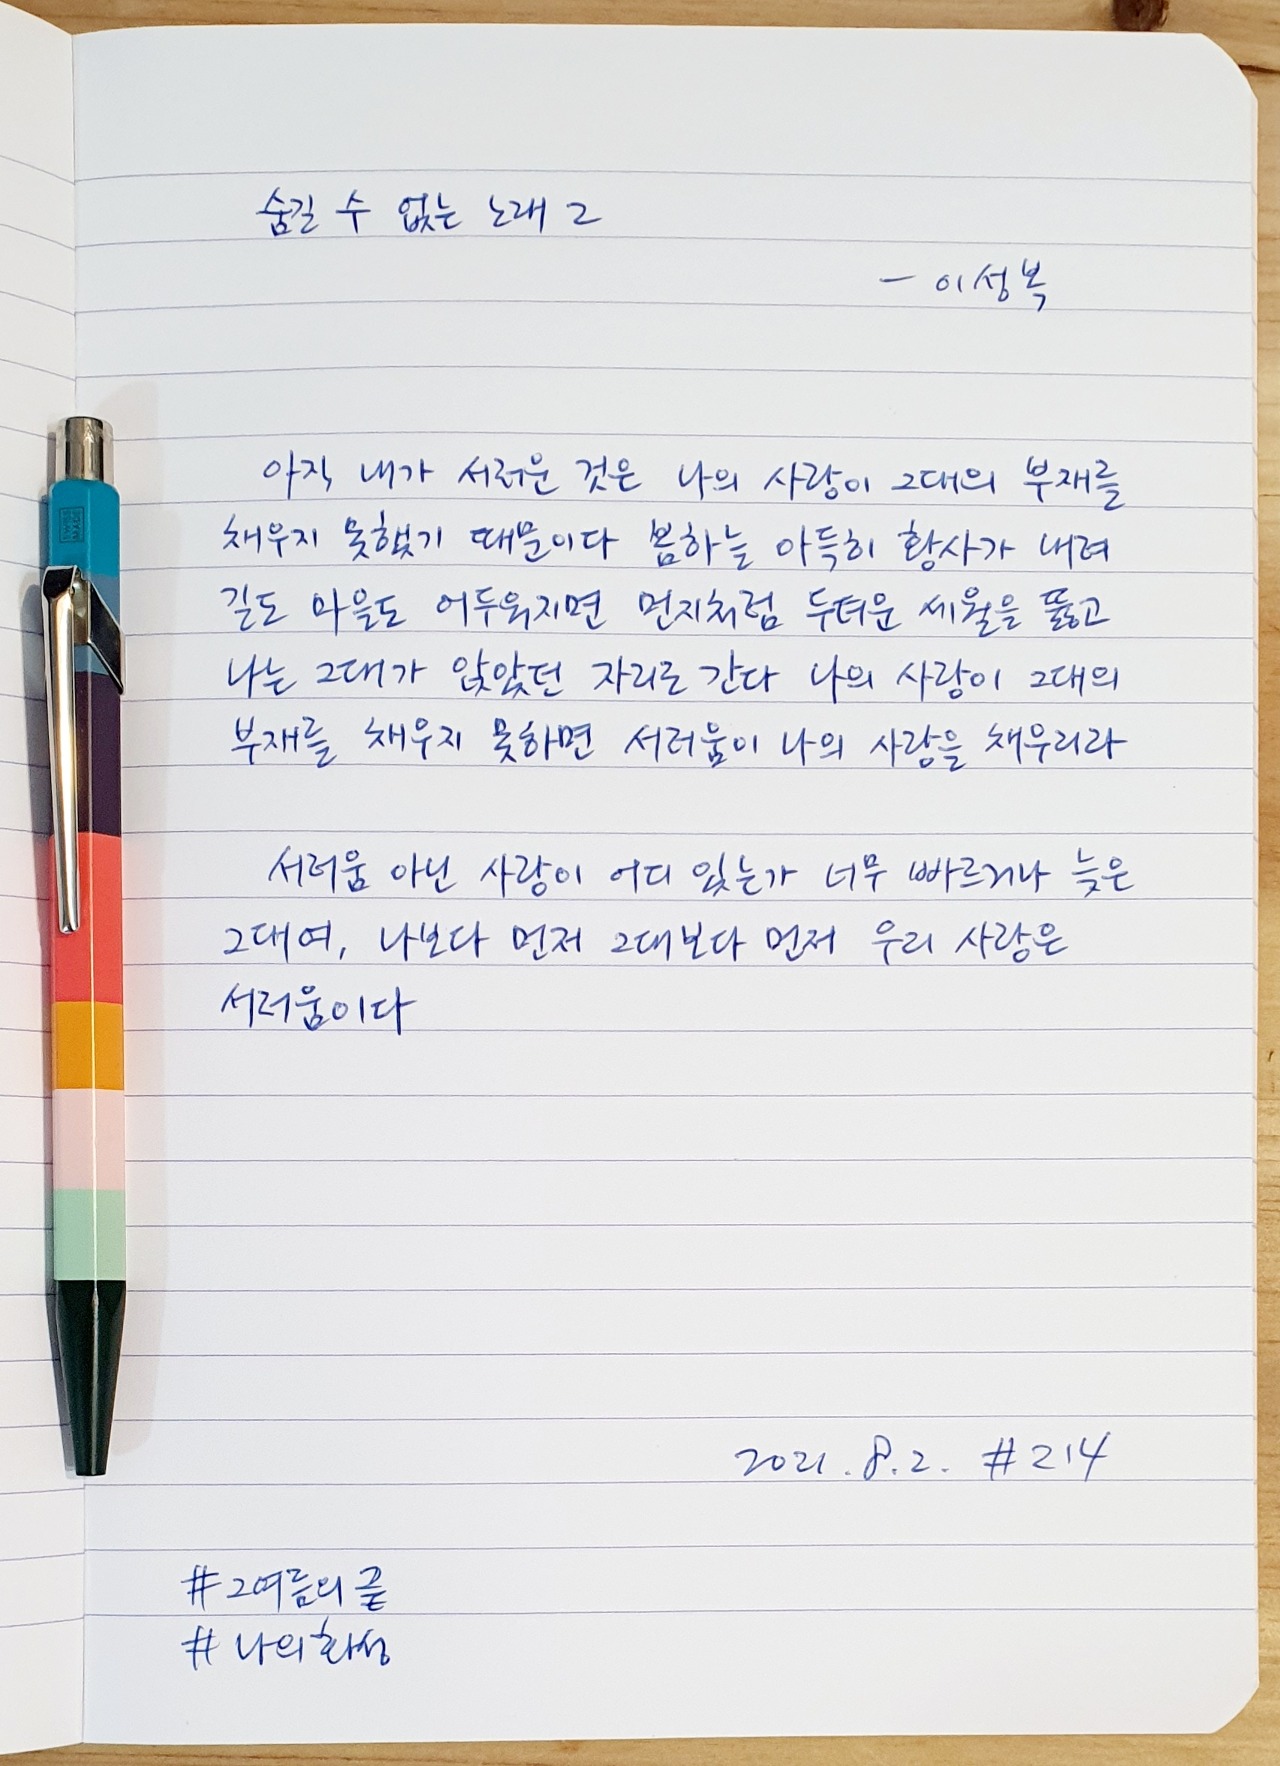 숨길 수 없는 노래 2
- 이성복
아직 내가 서러운 것은 나의 사랑이 그대의 부재를
채우지 못했기 때문이다 봄하늘 아득히 황사가 내려
길도 마을도 어두워지면 먼지처럼 두터운 세월을 뚫고
나는 그대가 앉았던 자리로 간다 나의 사랑이 그대의
부재를 채우지 못하면 서러움이 나의 사랑을 채우리라
서러움 아닌 사랑이 어디 있는가 너무 빠르거나 늦은
그대여, 나보다 먼저 그대보다 먼저 우리 사랑은
서러움이다
2021. 8. 2. #214
#그여름의 끝
#나의화성
SWISS MADE